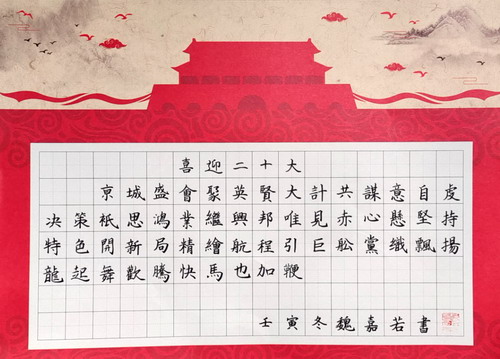 喜迎二十大
京城盛會聚英賢大計共謀意自虔
决策祇思鴻業繼興邦唯見赤心懸堅持
特色開新局精繪航程引巨舩黨幟飄揚
龍起舞歡騰快馬也加鞭
壬寅冬魏嘉若書